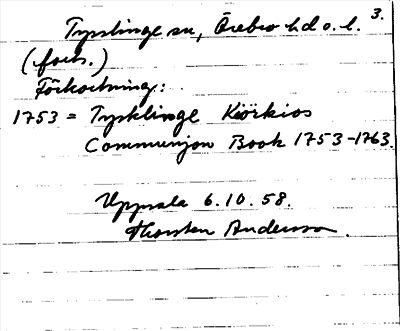 3.
Tysslinge sn, Örebro hd o. l.
(forts.)
Förkortning:
1753 = Tysklinge Kiörkios
Communion Book 1753-1763.
Uppsala 6.10.58.
Thorsten Andersson.